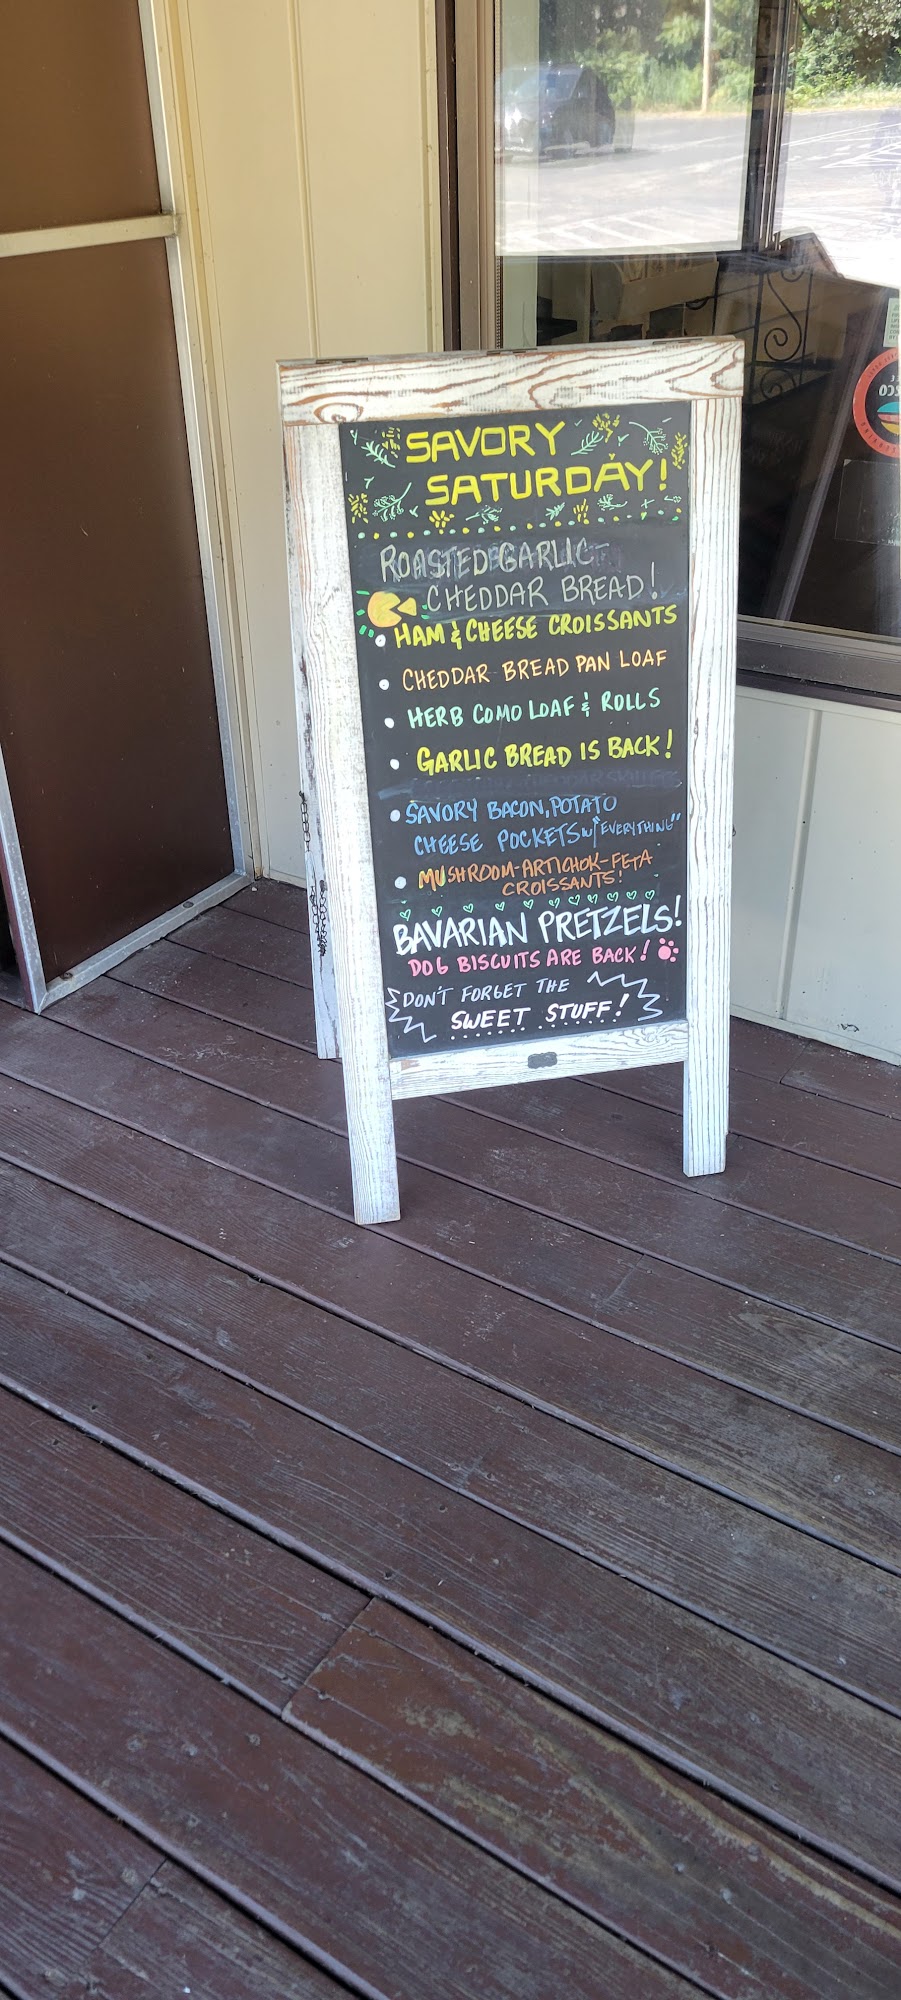 SAVORY
SATURDAY!
ROASTED GARLIC-
CHEDDAR BREAD!
HAM & CHEESE CROISSANTS
CHEDDAR BREAD PAN LOAF
HERB COMO LOAF & ROLLS
GARLIC BREAD IS BACK!
SAVORY BACON, POTATO
CHEESE POCKETS w/"EVERYTHING"
MUSHROOM-ARTICHOK-FETA
CROISSANTS!
BAVARIAN PRETZELS!
DOG BISCUITS ARE BACK!
DON'T FORGET THE
SWEET STUFF!